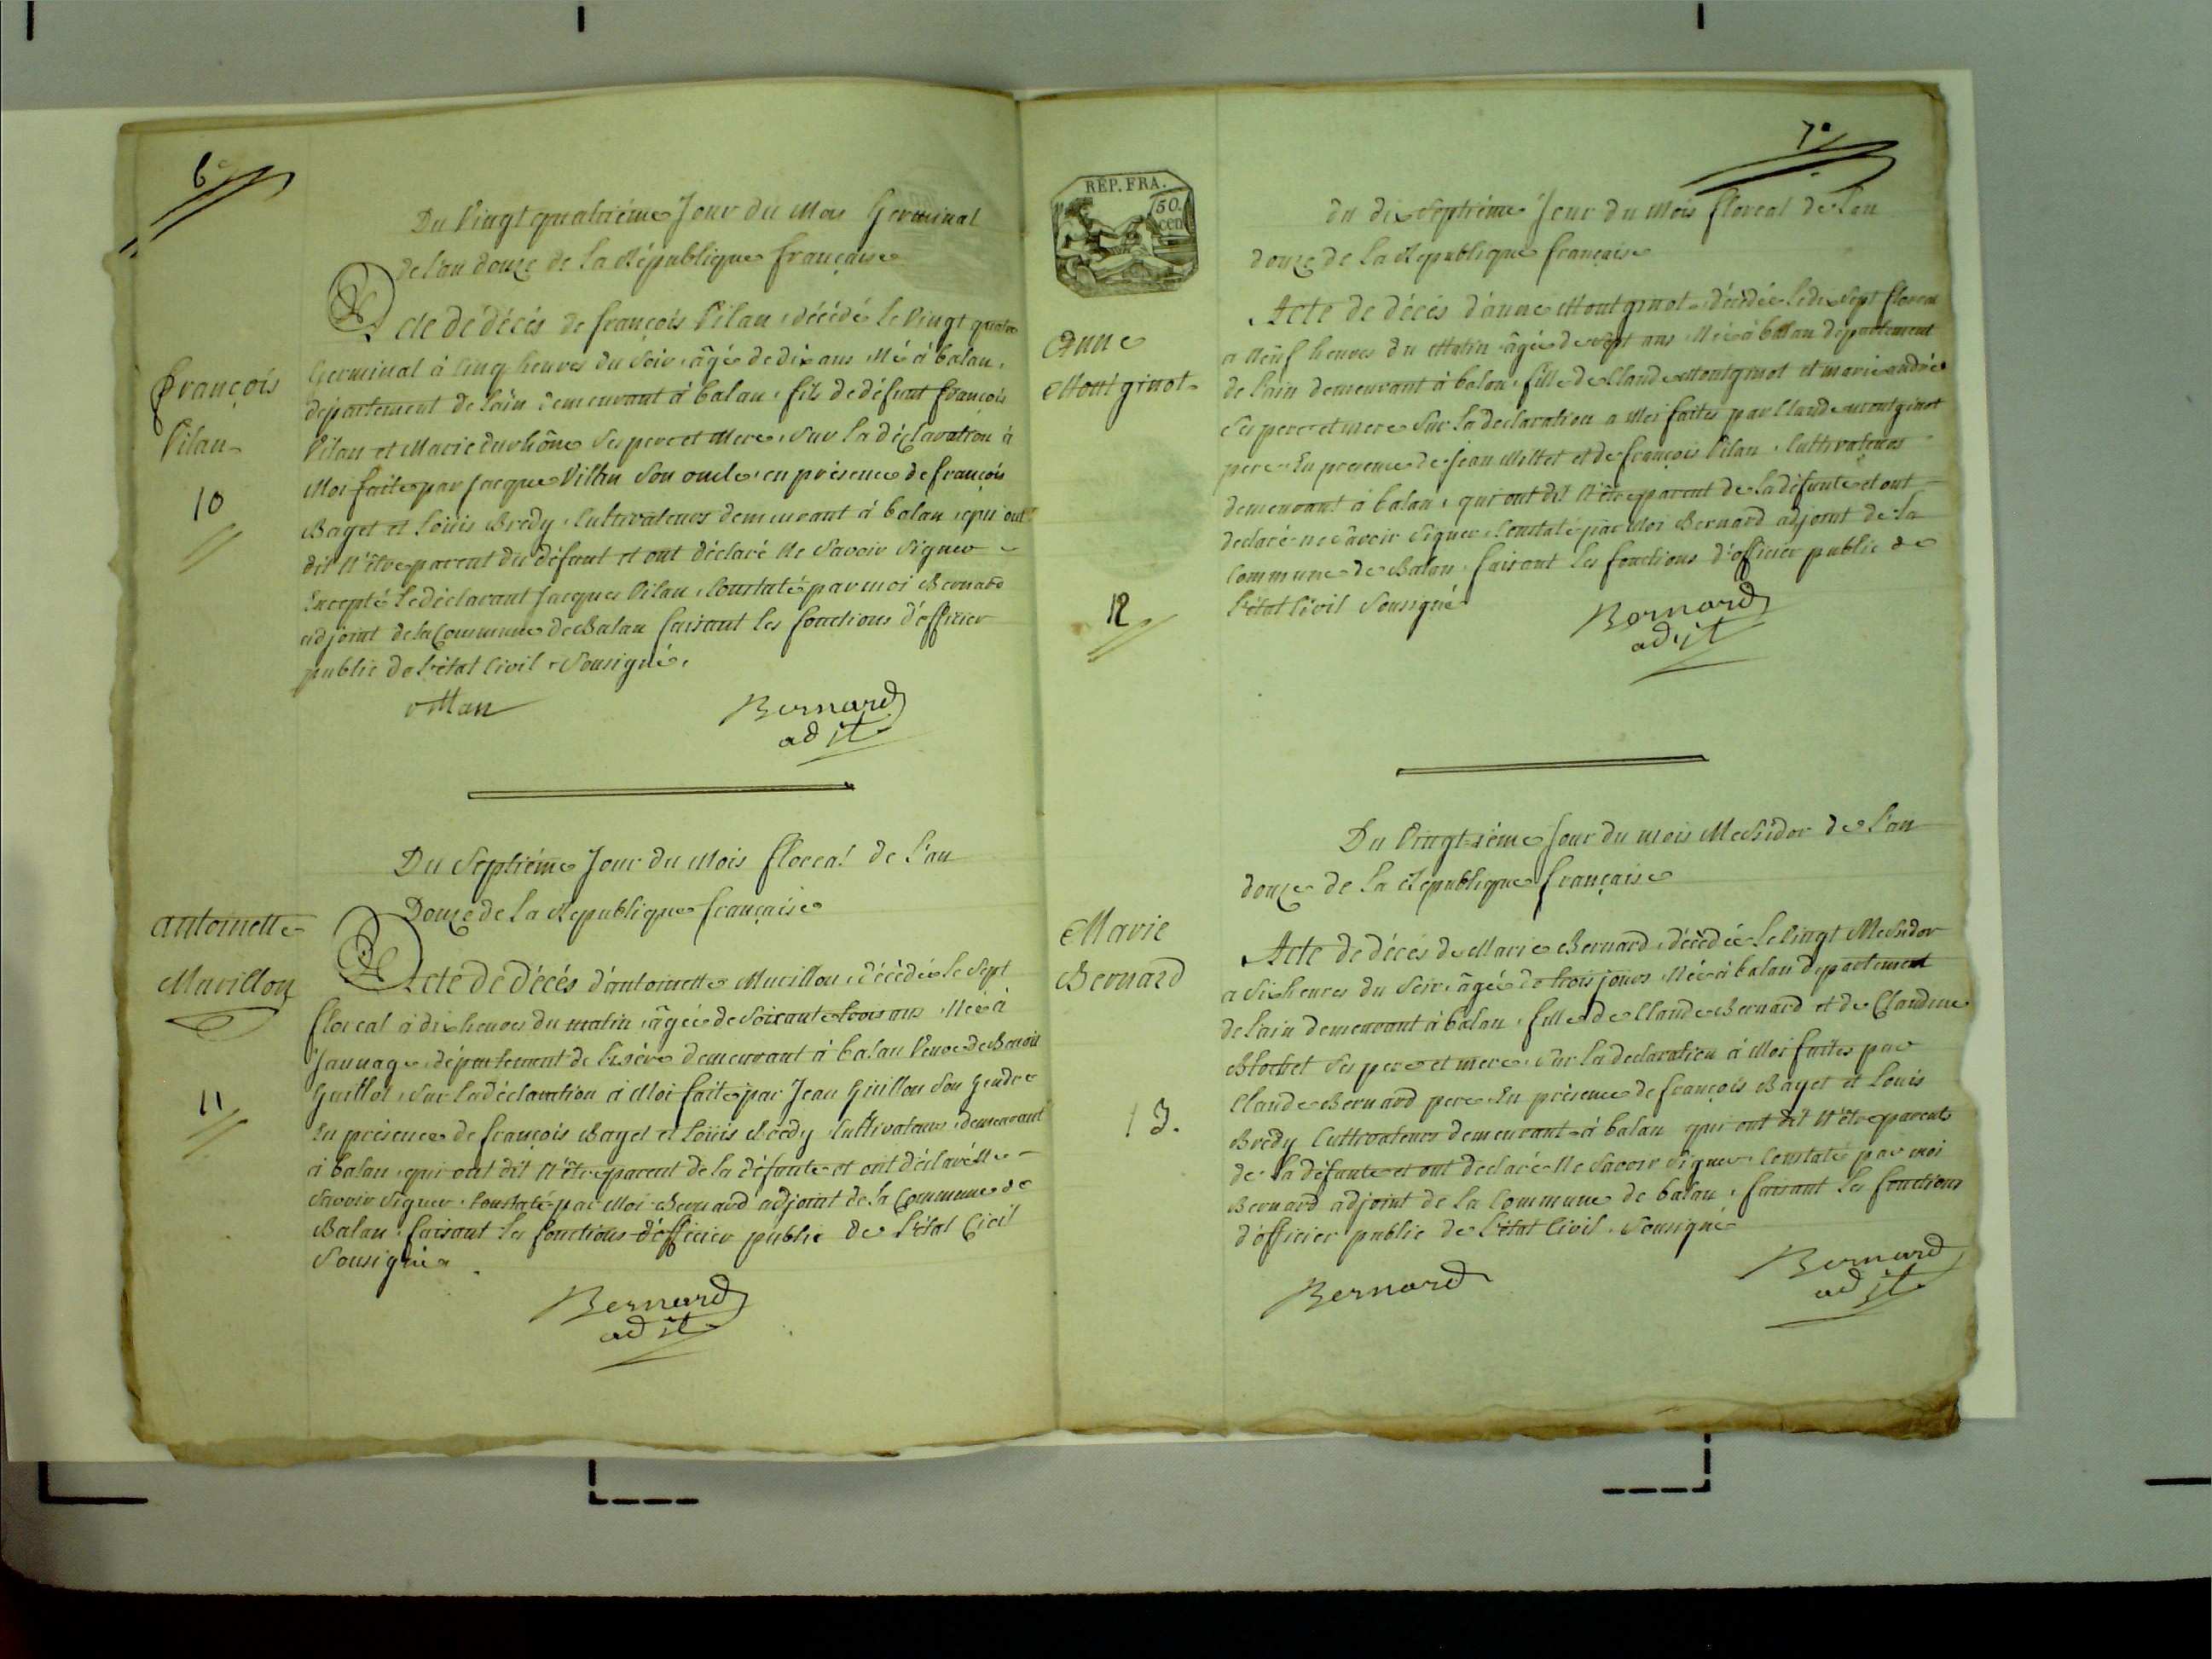 6e
Du Vingt quatriéme Jour du Mois Germinal
de l'an douze de la République française
Acte de décés de françois Vilan, décédé le Vingt quatre
Germinal à cinq heures du Soir, âgé de dix ans, Né à balan,
departement de l'ain demeurant à balan, fils de défunt françois
Vilan et Marie durhône Ses pere et Mere, Sur la déclaration à
Moi faite par Jacque Villan Son oncle, en présence de françois
Bayet et loüis Bredy, Cultivateurs demeurant à balan, qui ont
dit N'être parent du défunt et ont déclaré Ne Savoir Signer
Excepté le déclarant Jacques Vilan, Constaté par moi Bernard
adjoint de la Commune de Balan faisant les fonctions d'officier
public de l'état Civil Sousigné,
François
Vilan
10
vilan
Bernard
adjt
Du Septiéme Jour du Mois floreal de l'an
Douze de la Republique française
Acte de Décés d'antoinette Muvillon, décédée le Sept
floreal à dix heures du matin, âgée de Soixante trois ans, Née à
Jannage, département de l'isère demeurant à balan Veuve de Benoit
Guillot, Sur la déclaration à Moi faite par Jean Guillon Son Gendre
En présence de françois Bayet et loüis Bredy Cultivateurs, demeurant
à balan, qui ont dit N'être parent de la défunte et ont déclaré Ne
Savoir Signer, Constaté par Moi Bernard adjoint de la Commune de
Balan, faisant les fonctions d'officier public de l'état Civil
Sousigné
antoinette
Muvillon
11
Bernard
adjt
7e
REP. FRA.
50.
cen
du dix Septiéme Jour du Mois floreal de l'an
douze de la Republique française
Acte de décés d'anne Montginot, décédée le dix Sept floreal
a Neuf heures du Matin, âgée de Sept ans, Née à balan département
de l'ain demeurant à balan, fille de Claude Montginot et marie andrée
Ses pere et mere Sur la declaration a Moi faites par Claude montginot
pere En presence de Jean Millet et de françois Vilan, Cultivateurs
demeurant à balan, qui ont dit N'être parent de la défunte et ont
declaré ne Savoir Signer, Constaté par Moi Bernard adjoint de la
Commune de Balan, faisant les fonctions d'officier public de
l'état Civil Sousigné
Anne
Montginot
12
Bernard
adjt
Du Vingt-iéme Jour du mois Messidor de l'an
douze de la Republique française
Acte de décés de Marie Bernard, décédée le Vingt Messidor
a Six heures du Soir, âgée de trois jours, Née à balan departement
de l'ain demeurant à balan, fille de Claude Bernard et de Claudine
Blochet Ses pere et mere, Sur la declaration à Moi faites par
Claude Bernard pere En présence de françois Bayet et Louis
Brédy Cultivateurs demeurant à balan qui ont dit N'être parents
de la défunte et ont declaré Ne Savoir Signer Constaté par moi
Bernard adjoint de la Commune de balan, faisant les fonctions
d'officier public de l'état Civil, Sousigné
Marie
Bernard
13.
Bernard
Bernard
adjt